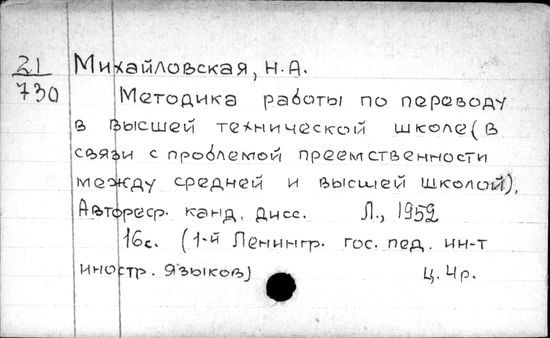 21 Михайловская, Н.А.
730 Методика работы по переводу
в высшей технической школе (в
связи с проблемой преемственности
между средней и высшей школой).
Автореф. канд. дисс. Л., 1952
16с. (1-й Ленингр. гос. пед. ин-т
иностр. языков) Ц. 4р.